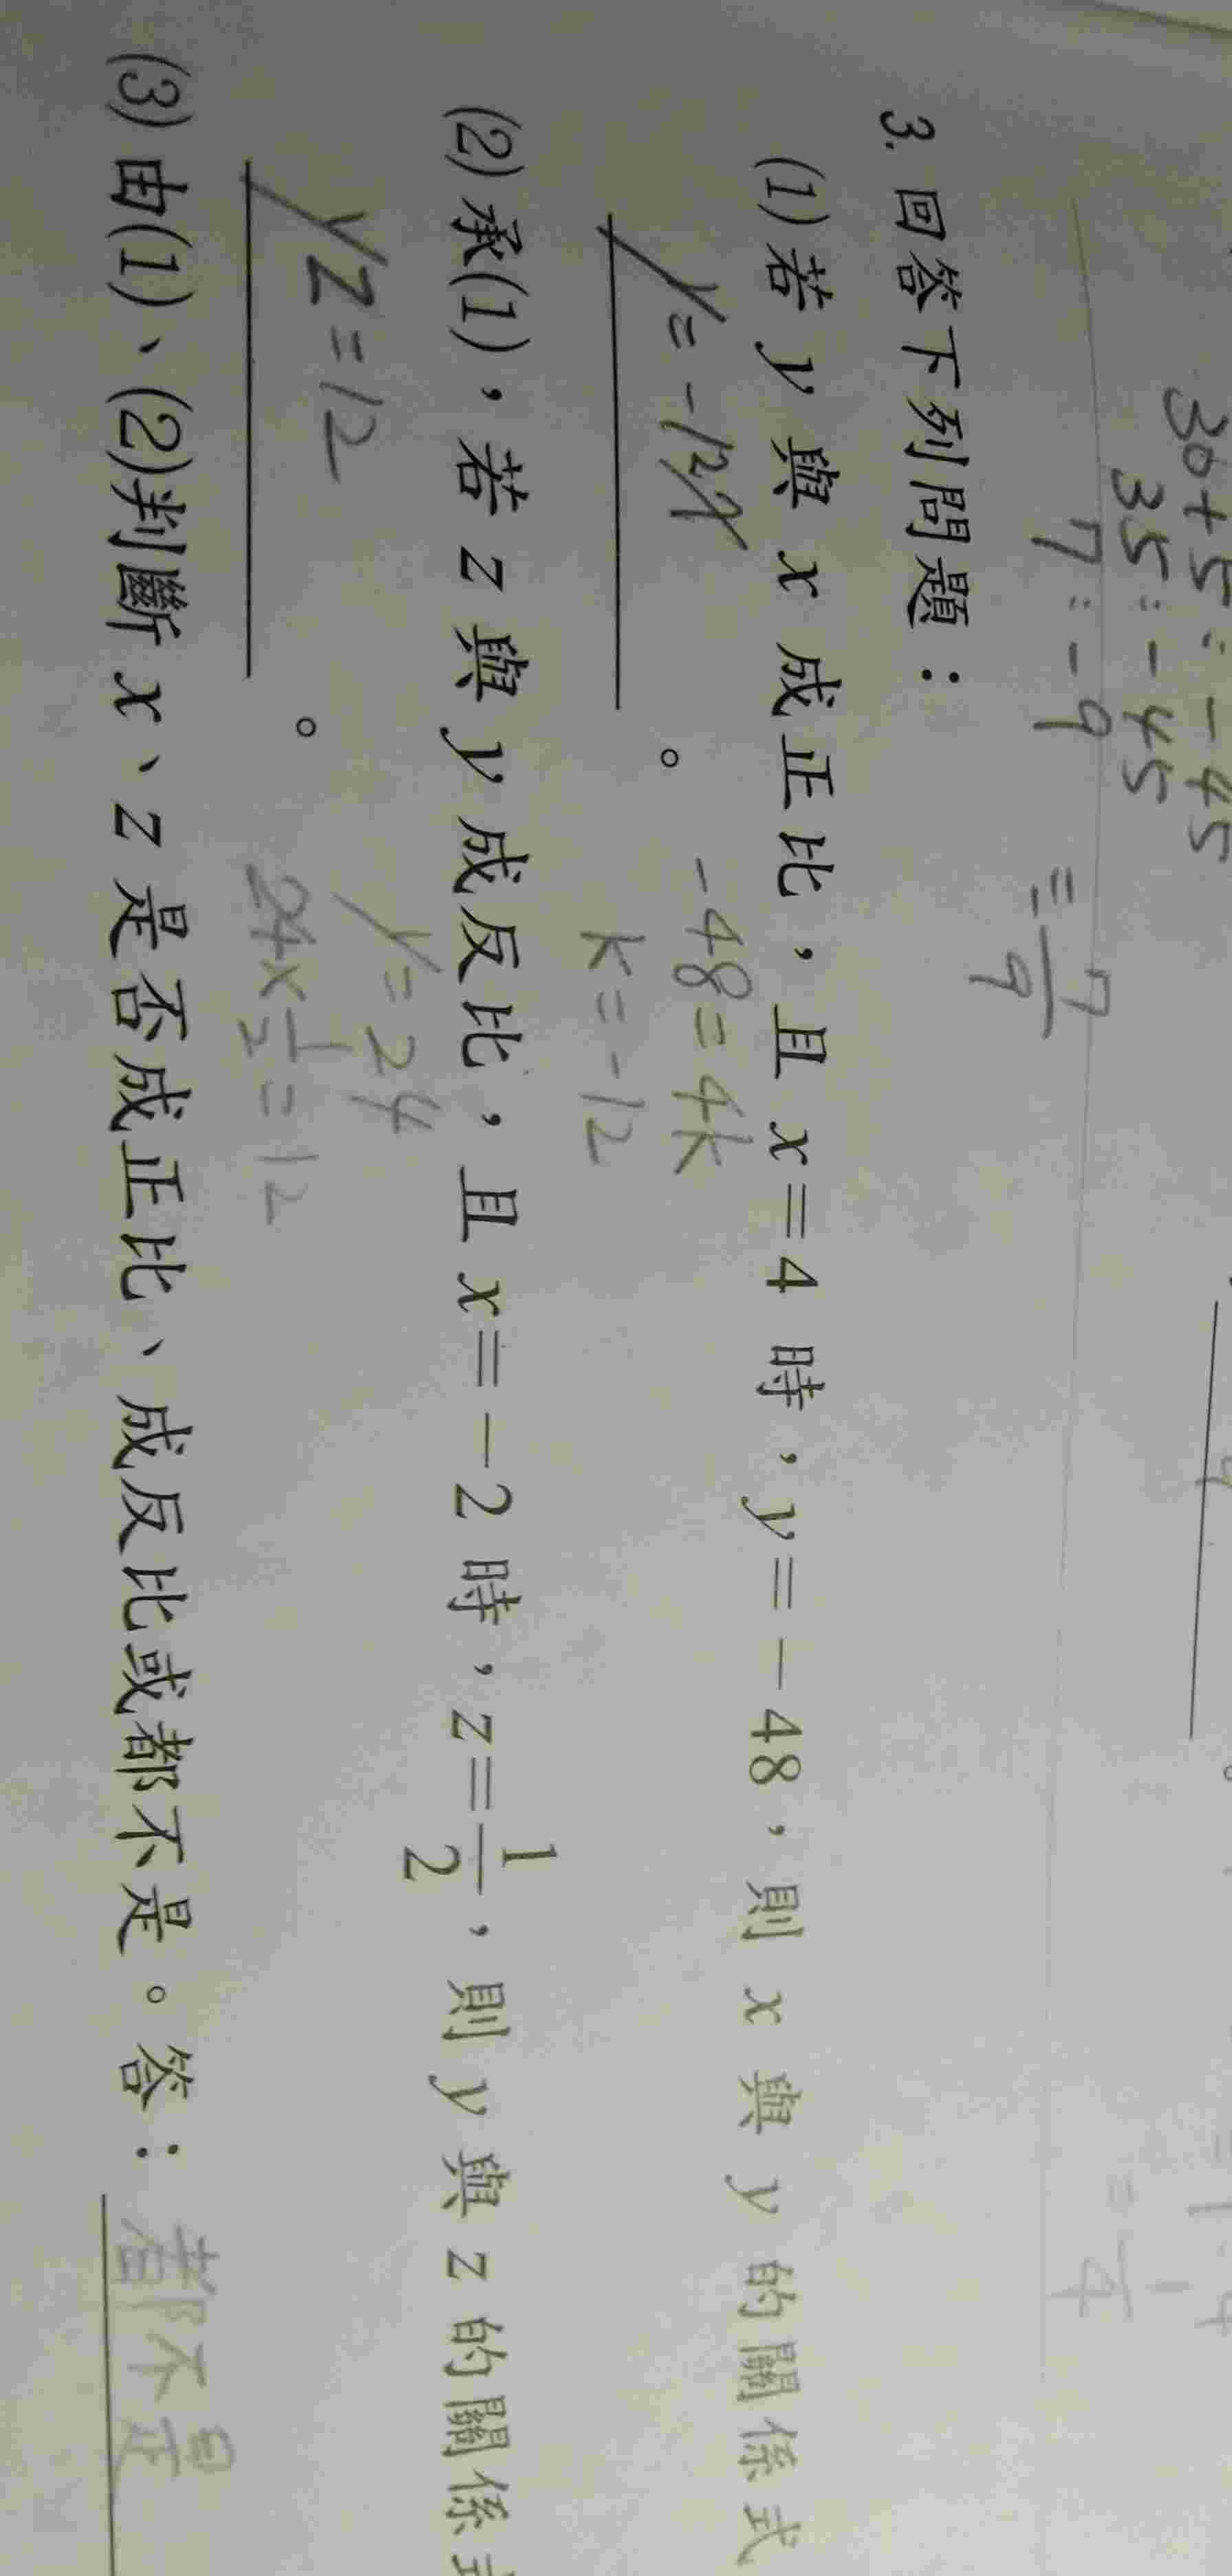 30+5:-45
35:-45
7:-9 =7/9
3. 回答下列問題：
(1) 若 y 與 x 成正比，且 x=4 時，y=-48，則 x 與 y 的關係式
y=-12x 。 -48=4k
k=-12
(2) 承(1)，若 z 與 y 成反比，且 x=-2 時，z=1/2，則 y 與 z 的關係式
yz=12 。 y=24
24×1/2=12
(3) 由(1)、(2)判斷 x、z 是否成正比、成反比或都不是。答：都不是